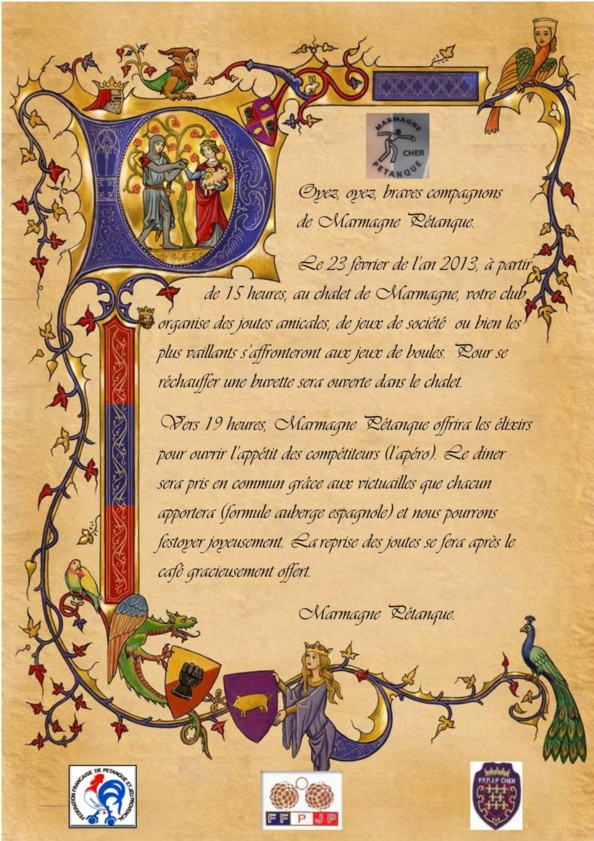 MARMAGNE
CHER
PETANQUE
Oyez, oyez, braves compagnons
de Marmagne Pétanque.
Le 23 février de l'an 2013, à partir
de 15 heures, au chalet de Marmagne, votre club
organise des joutes amicales, de jeux de société ou bien les
plus vaillants s'affronteront aux jeux de boules. Pour se
réchauffer une buvette sera ouverte dans le chalet.
Vers 19 heures, Marmagne Pétanque offrira les élixirs
pour ouvrir l'appétit des compétiteurs (l'apéro). Le diner
sera pris en commun grâce aux victuailles que chacun
apportera (formule auberge espagnole) et nous pourrons
festoyer joyeusement. La reprise des joutes se fera après le
café gracieusement offert.
Marmagne Pétanque.
FEDERATION FRANÇAISE DE PETANQUE ET JEU PROVENCAL
FFPJP
F.F.P.J.P CHER